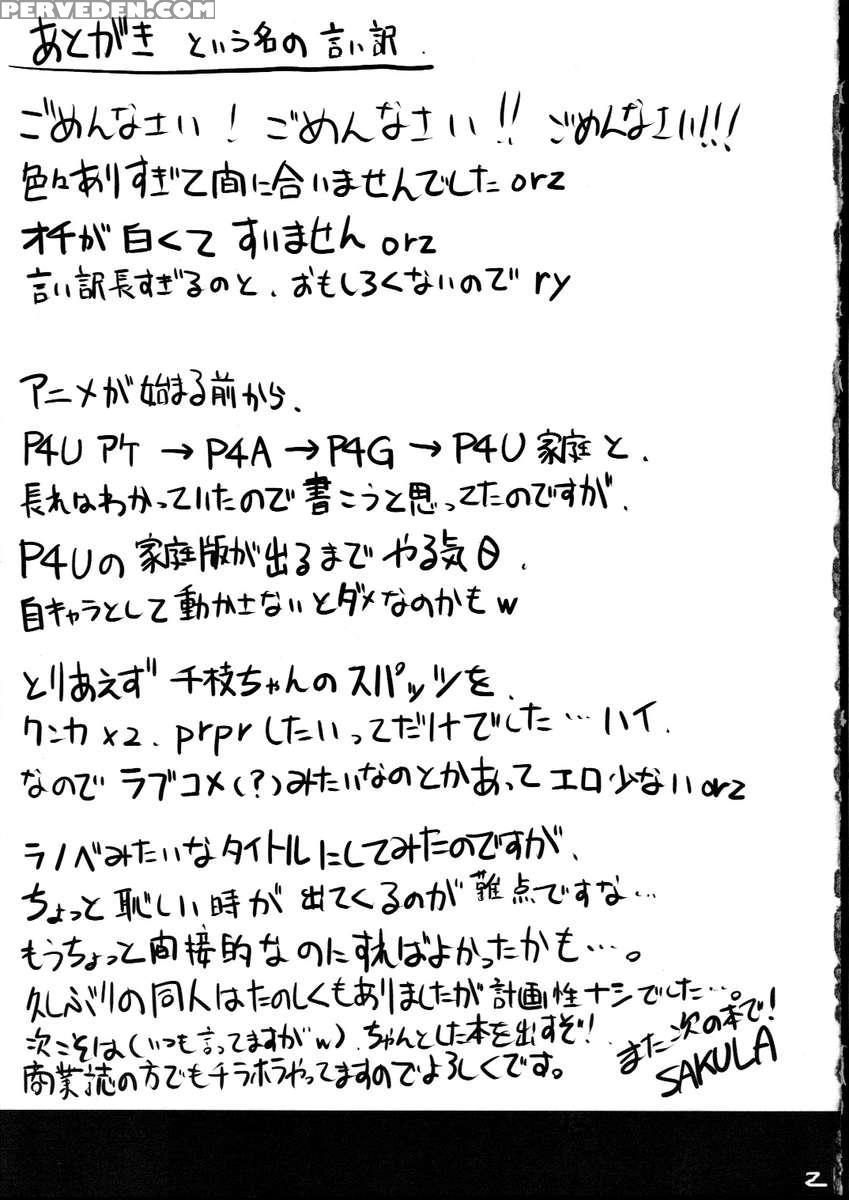 PERVEDEN.COM
あとがき という名の言い訳.
ごめんなさい! ごめんなさい!! ごめんなさい!!!
色々ありすぎて間に合いませんでしたorz
オチが白くてすいませんorz
言い訳長すぎるのと、おもしろくないのでry
アニメが始まる前から、
P4U アケ→P4A→P4G→P4U 家庭と、
長れはわかっていたので書こうと思ってたのですが、
P4Uの家庭版が出るまでやる気0.
自キャラとして動かさないとダメなのかもw
とりあえず千枝ちゃんのスパッツを、
クンカ×2、prprしたいってだけでした…ハイ、
なのでラブコメ(?)みたいなのとかあってエロ少ないorz
ラノベみたいなタイトルにしてみたのですが、
ちょっと恥しい時が出てくるのが難点ですな…
もうちょっと間接的なのにすればよかったかも…。
久しぶりの同人はたのしくもありましたが計画性ナシでした…。
次こそは(いつも言ってますがw)、ちゃんとした本を出すぞ!
商業誌の方でもチラホラやってますのでよろしくです。
また次の本で!
SAKULA
2